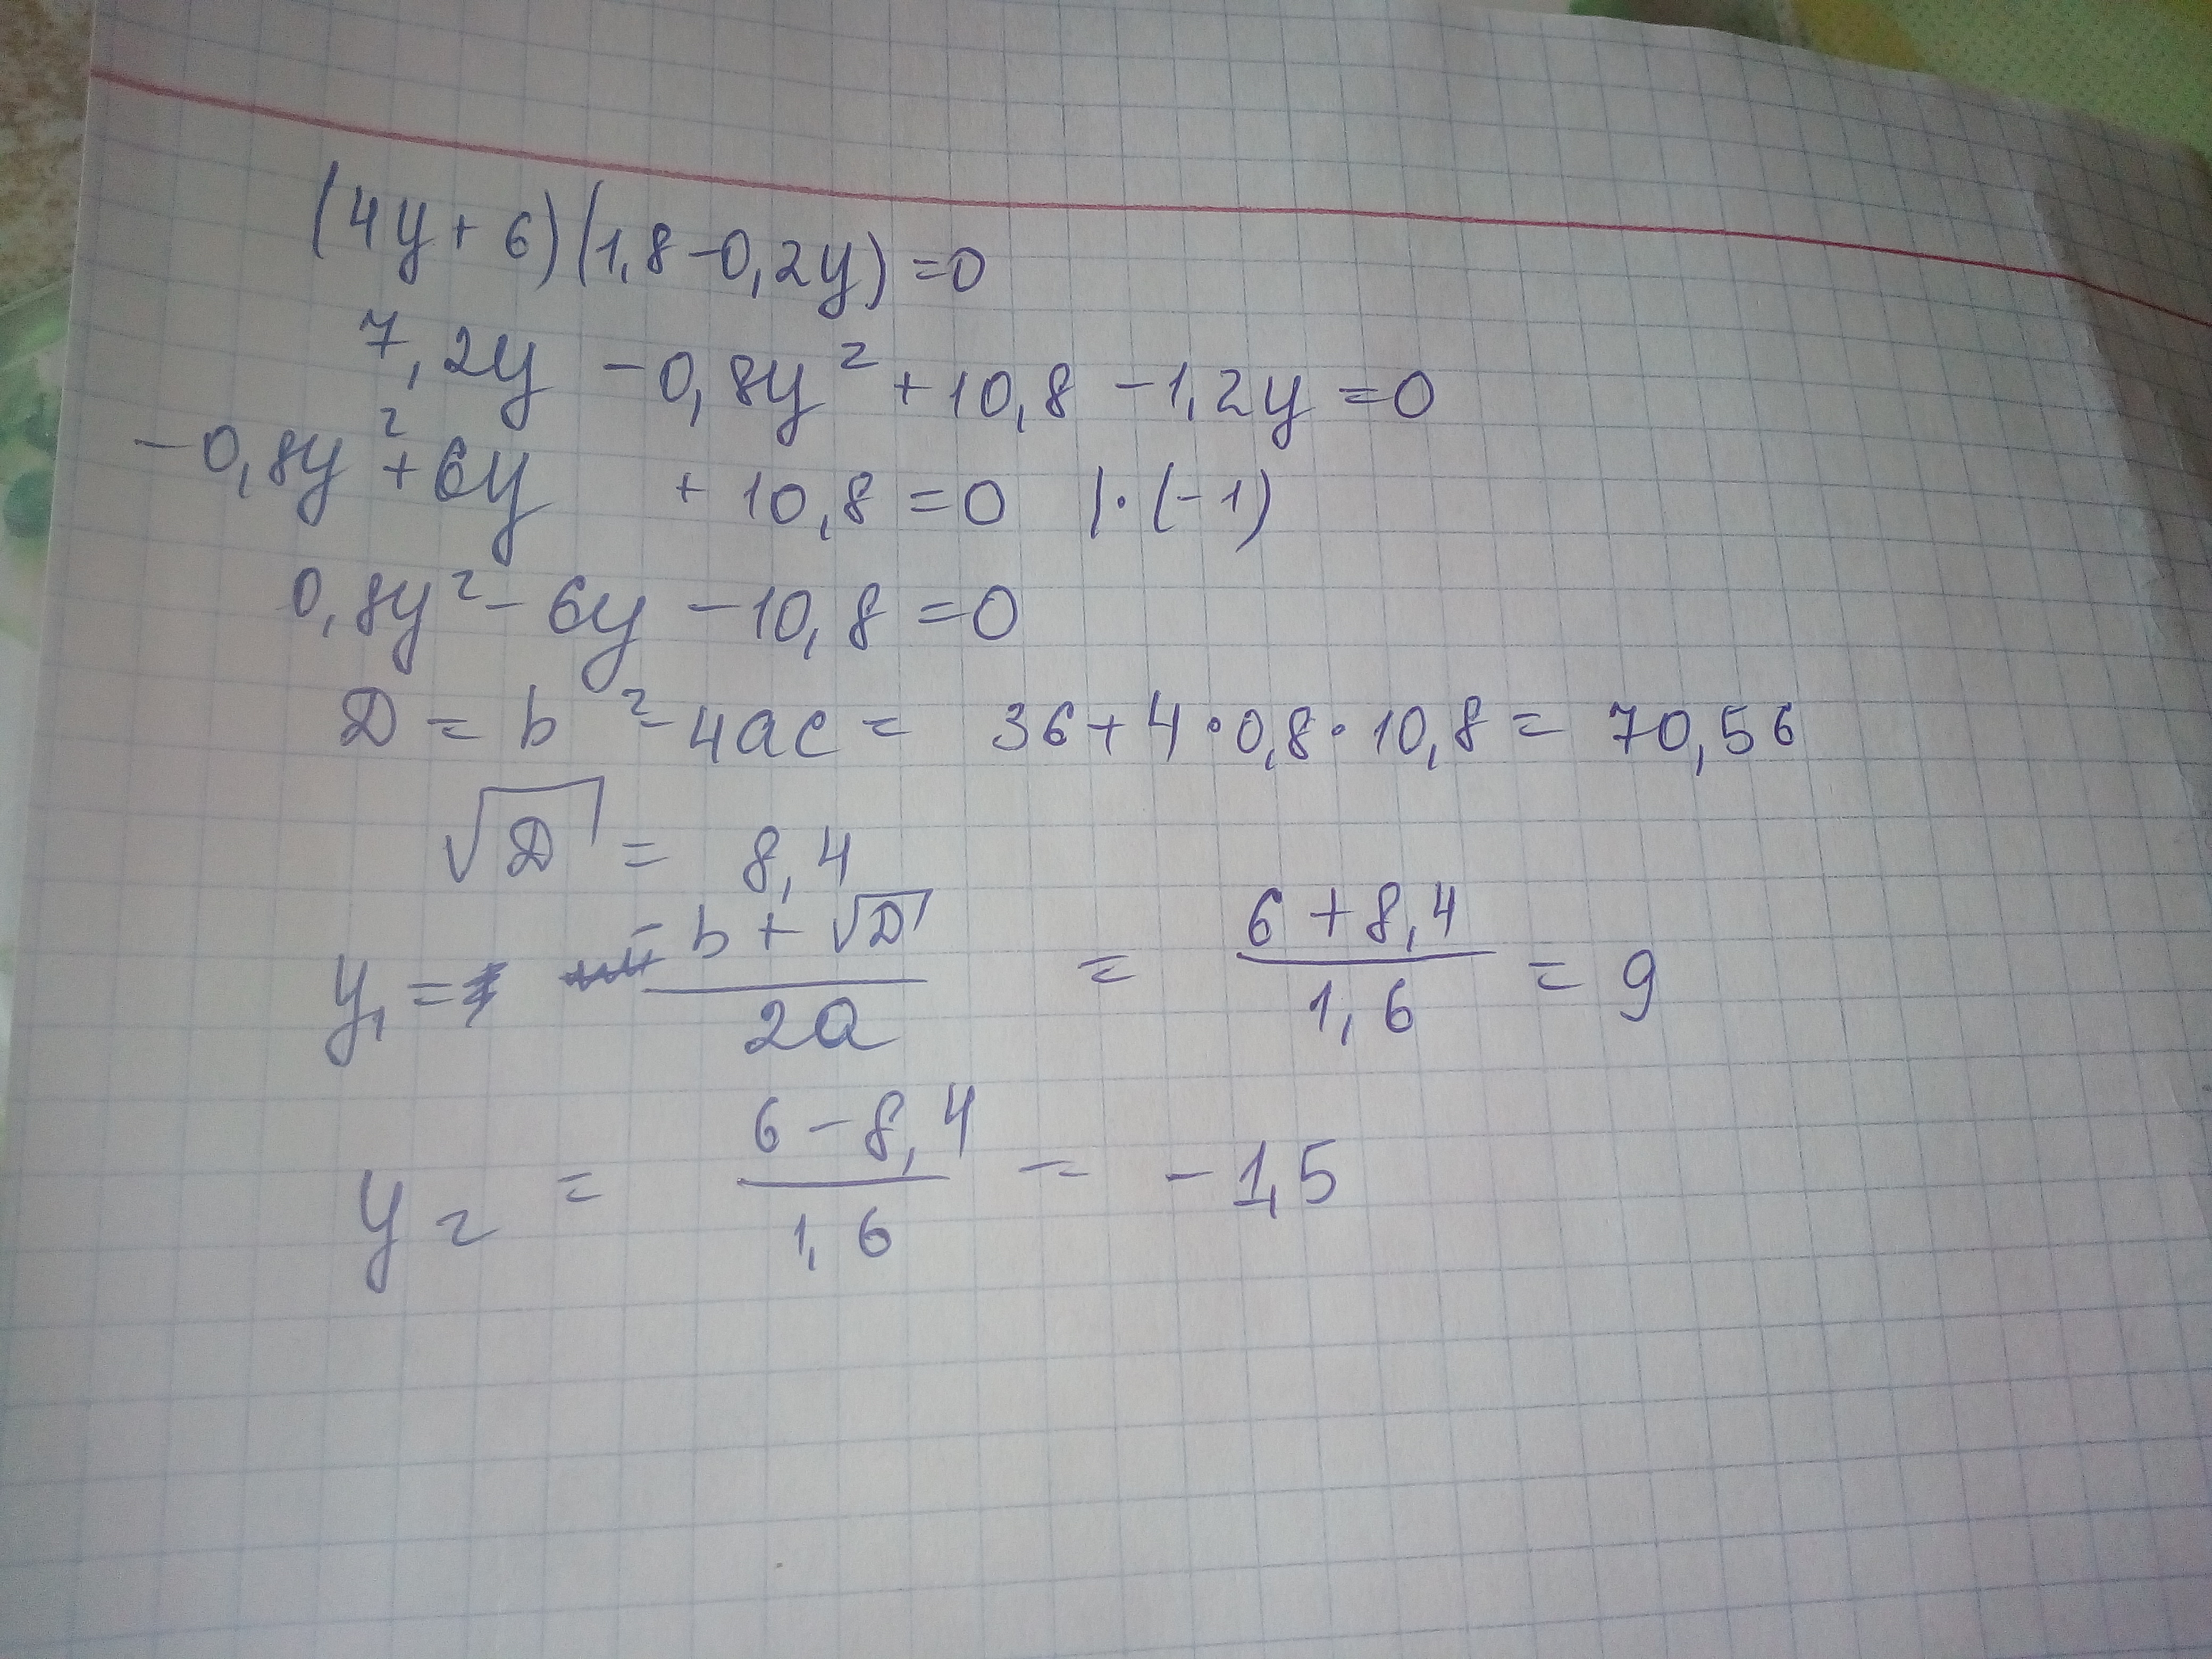 (4y+6)(1,8-0,2y)=0
7,2y -0,8y² +10,8 -1,2y =0
-0,8y²+6y +10,8=0 |·(-1)
0,8y²-6y-10,8=0
D = b²-4ac = 36+4·0,8·10,8= 70,56
√D = 8,4
y₁= (-b+√D)/(2a) = (6+8,4)/(1,6) = 9
y₂ = (6-8,4)/(1,6) = -1,5